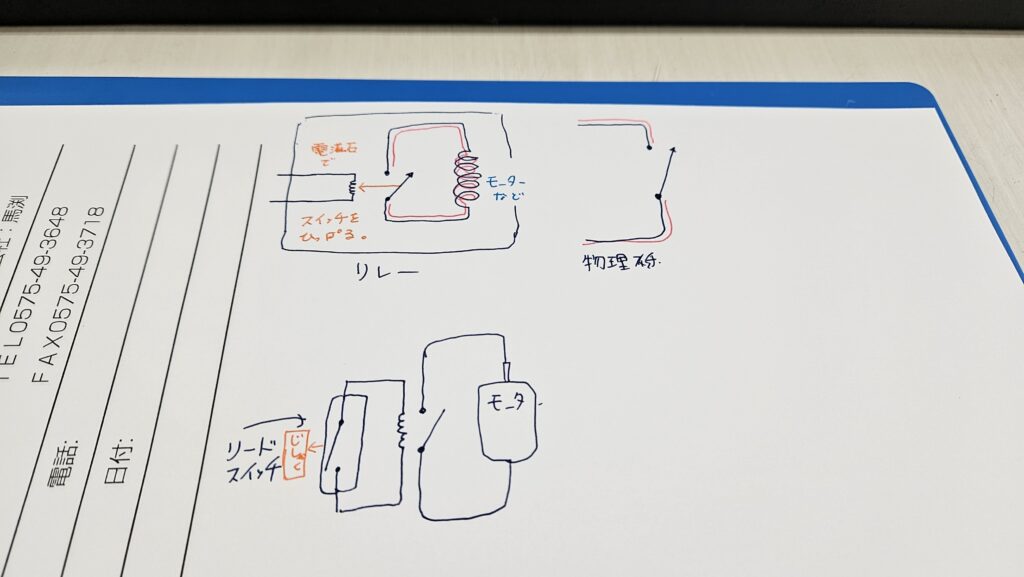 電磁石
で
スイッチを
ひっぱる。
モーター
など
リレー
物理
リード
スイッチ
じしゃく
モータ
：馬渕
ＴＥＬ0575-49-3648
ＦＡＸ0575-49-3718
電話:
日付: